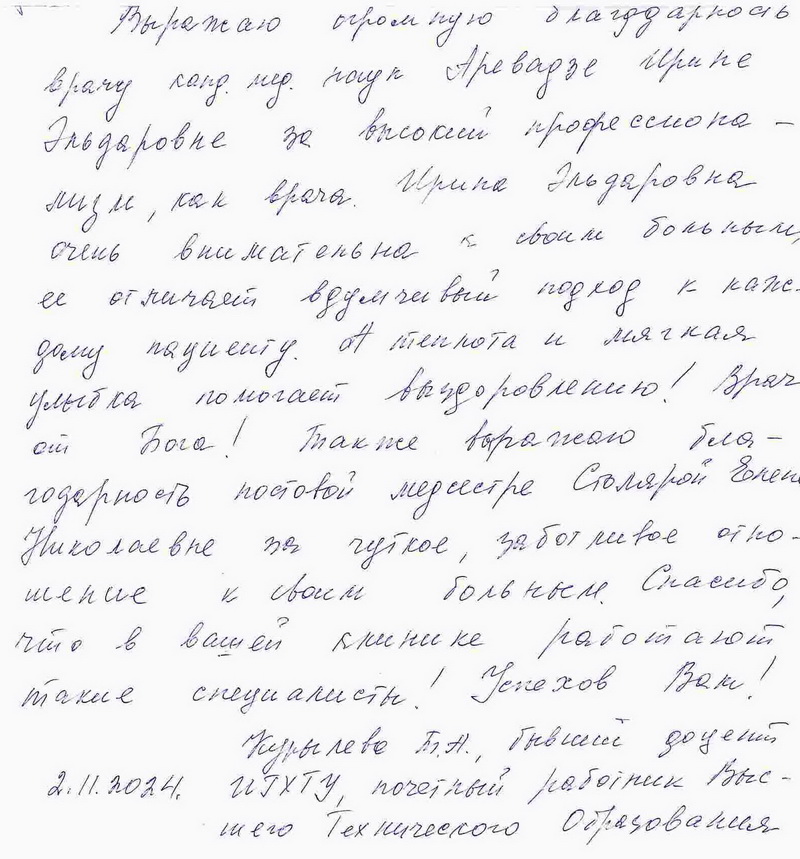 Выражаю огромную благодарность
врачу канд. мед. наук Аревадзе Ирине
Эльдаровне за высокий профессиона-
лизм, как врача. Ирина Эльдаровна
очень внимательна к своим больным,
ее отличает вдумчивый подход к каж-
дому пациенту. А теплота и мягкая
улыбка помогает выздоровлению! Врач
от Бога! Также выражаю бла-
годарность постовой медсестре Столярой Елене
Николаевне за чуткое, заботливое отно-
шение к своим больным. Спасибо,
что в вашей клинике работают
такие специалисты! Успехов Вам!
Курылева Т.А., бывший доцент
2.11.2024. ИГХТУ, почетный работник Выс-
шего Технического Образования